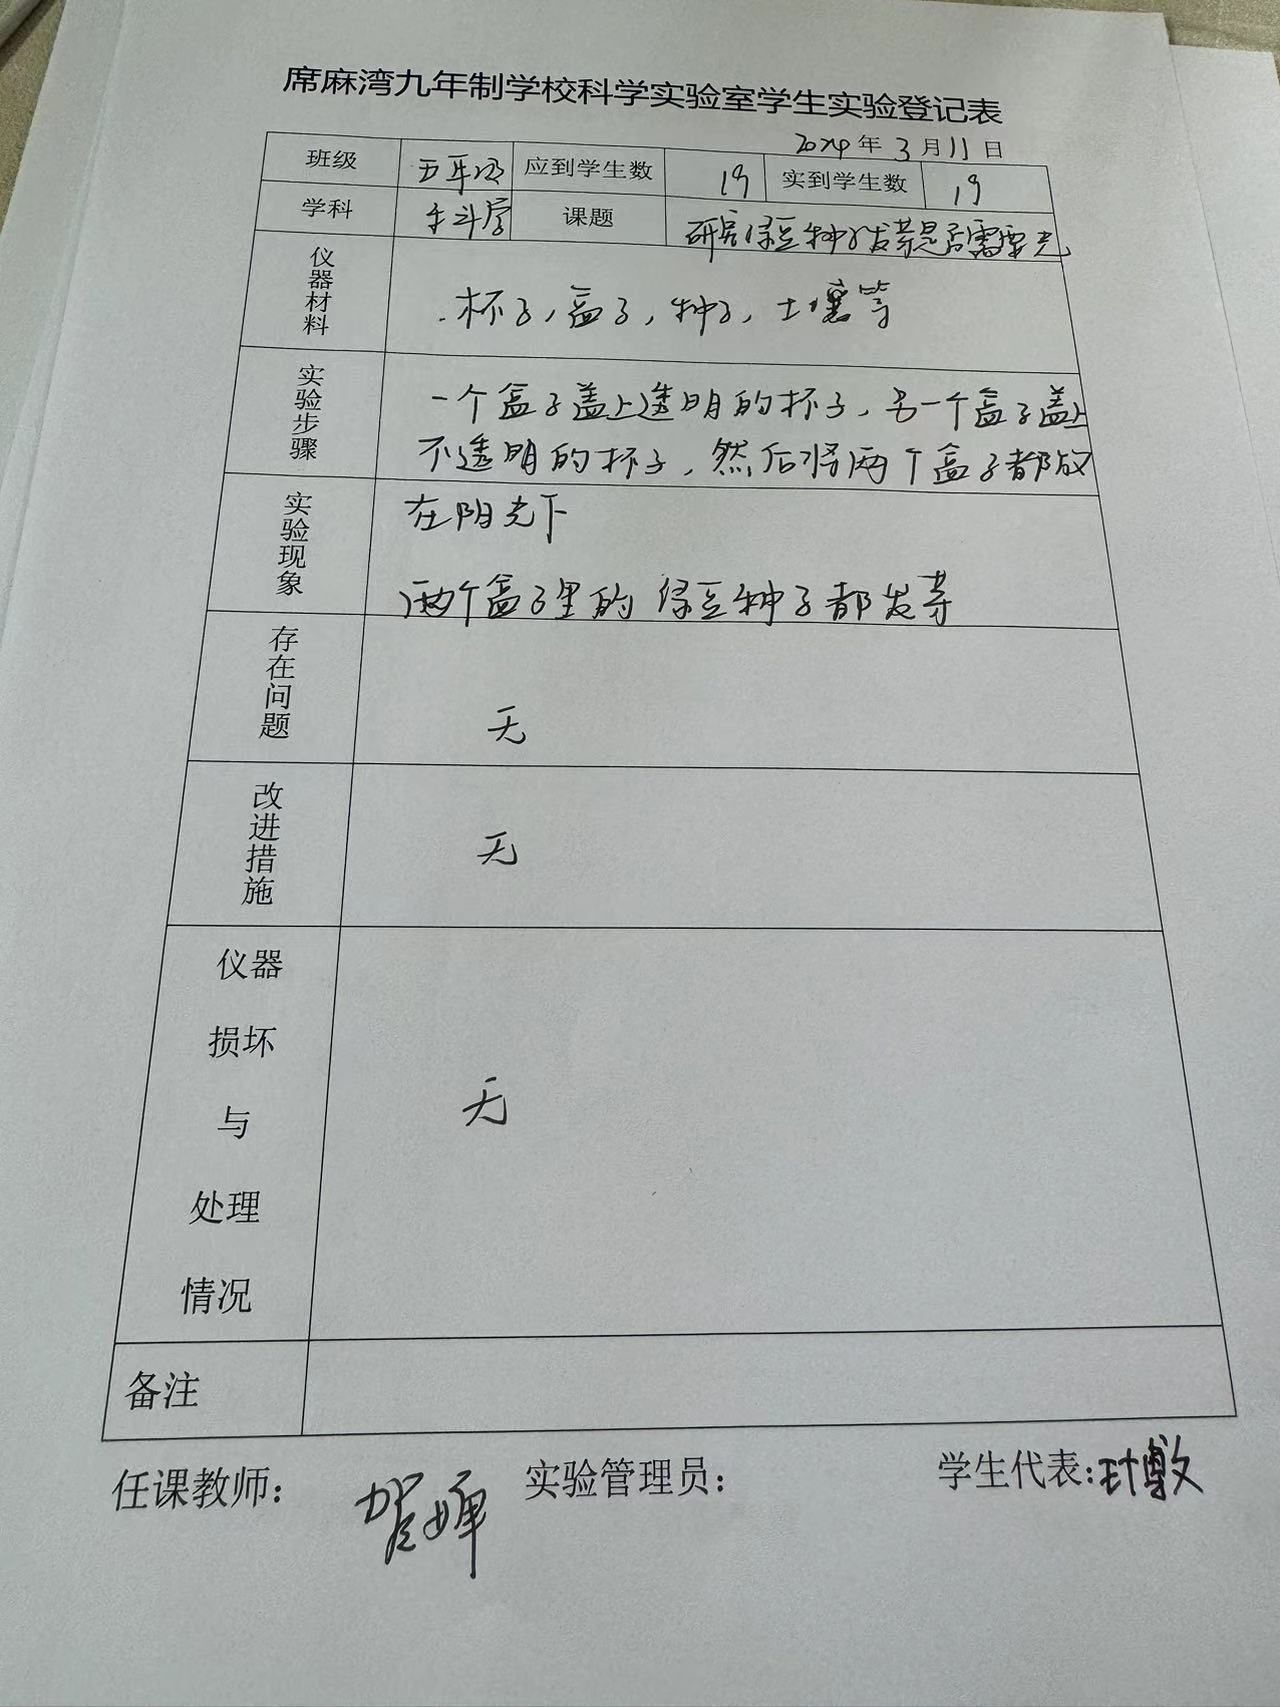 席麻湾九年制学校科学实验室学生实验登记表
2024年3月11日
班级 五年级 应到学生数 19 实到学生数 19
学科 科学 课题 研究绿豆种子发芽是否需要光
仪器材料 杯子，盒子，种子，土壤等
实验步骤 一个盒子盖上透明的杯子，另一个盒子盖上
不透明的杯子，然后将两个盒子都放
在阳光下
实验现象 两个盒子里的绿豆种子都发芽
存在问题 无
改进措施 无
仪器
损坏
与
处理
情况
无
备注
任课教师： 贺婵 实验管理员： 学生代表：